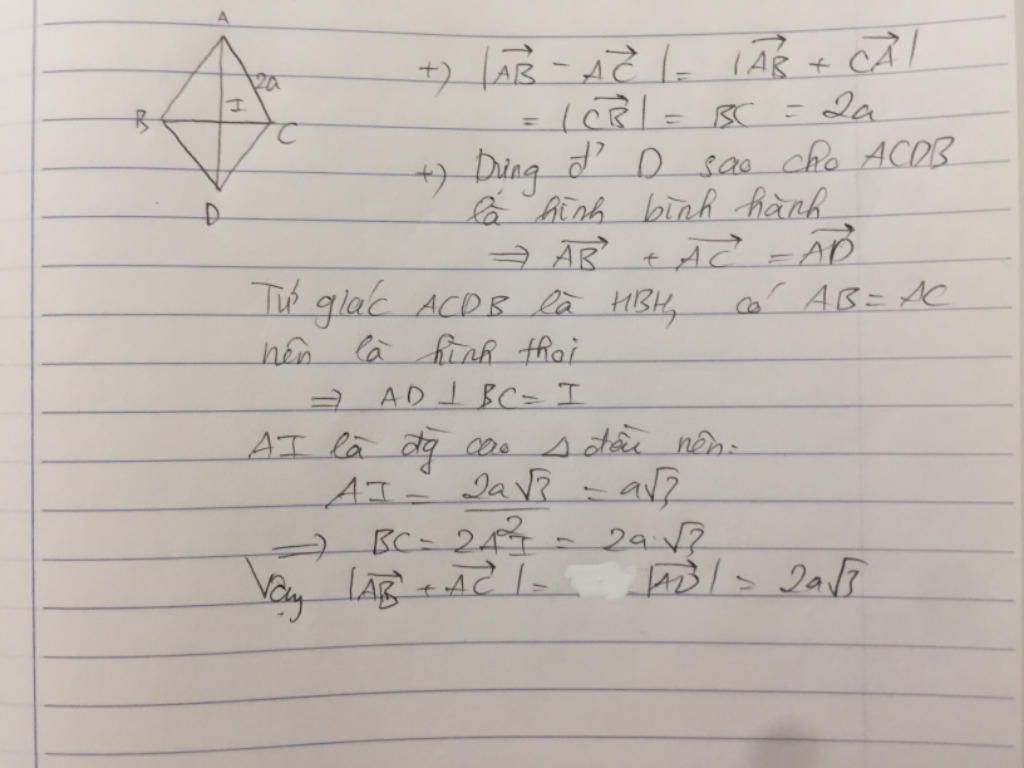 A
2a
I
B
C
D
+) |AB⃗ - AC⃗| = |AB⃗ + CA⃗|
= |CB⃗| = BC = 2a
+) Dựng đ' D sao cho ACDB
là hình bình hành
⇒ AB⃗ + AC⃗ = AD⃗
Tứ giác ACDB là HBH, có AB = AC
nên là hình thoi
⇒ AD ⊥ BC = I
AI là đg̀ cao Δ đều nên:
AI = 2a√3/2 = a√3
⇒ BC = 2AI = 2a.√3
Vậy |AB⃗ + AC⃗| = |AD⃗| = 2a√3